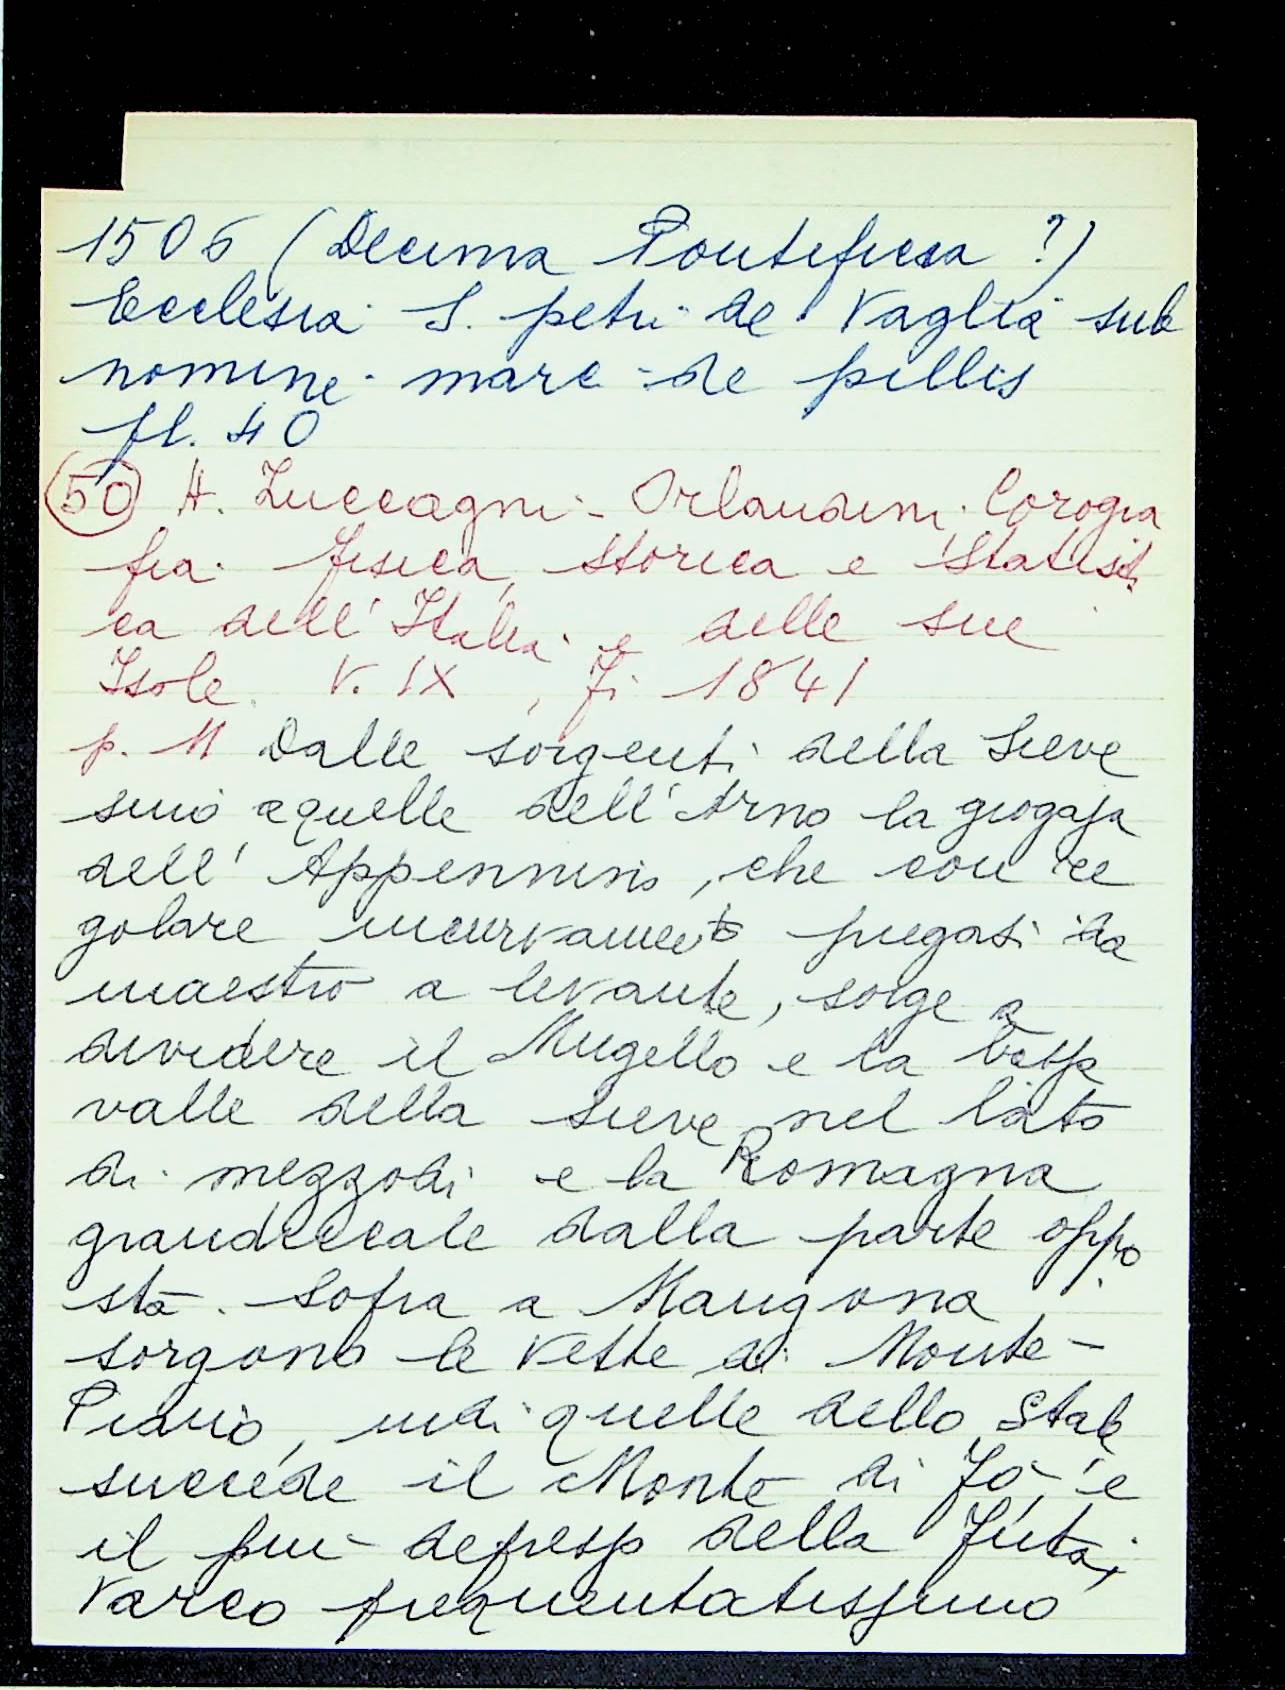 1506 (Decima Pontificia ?)
Ecclesia S. petri de Vaglia sub
nomine marc de pillis
fl. 40
(50) A. Zuccagni - Orlandini. Corogra
fia fisica, storica e statisti
ca dell'Italia e delle sue
Isole. V. IX, Fi 1841
p. 11 Dalle sorgenti della Sieve
sino a quelle dell'Arno la giogaja
dell'Appennino, che con re
golare incurvamento piegasi da
maestro a levante, sorge a
dividere il Mugello e la bassa
valle della Sieve nel lato
di mezzodi e la Romagna
granducale dalla parte oppo
sta. Sopra a Mangona
sorgono le vette di Monte-
Piano, indi quelle dello Stale
succede il Monte di Fò, e
il più depresso della Futa,
varco frequentatissimo